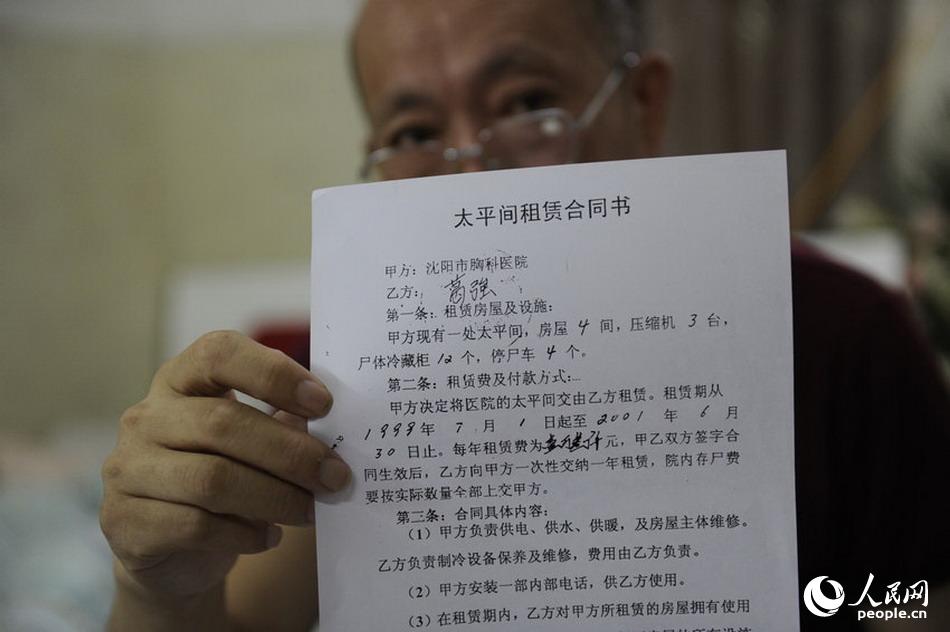 太平间租赁合同书
甲方：沈阳市胸科医院
乙方：葛强
第一条：租赁房屋及设施：
甲方现有一处太平间，房屋 4 间，压缩机 3 台，
尸体冷藏柜 12 个，停尸车 4 个。
第二条：租赁费及付款方式：
甲方决定将医院的太平间交由乙方租赁。租赁期从
1998 年 7 月 1 日起至 2001 年 6 月
30 日止。每年租赁费为 元，甲乙双方签字合
同生效后，乙方向甲方一次性交纳一年租赁，院内存尸费
要按实际数量全部上交甲方。
第三条：合同具体内容：
（1）甲方负责供电、供水、供暖，及房屋主体维修。
乙方负责制冷设备保养及维修，费用由乙方负责。
（2）甲方安装一部内部电话，供乙方使用。
（3）在租赁期内，乙方对甲方所租赁的房屋拥有使用
人民网
people.cn